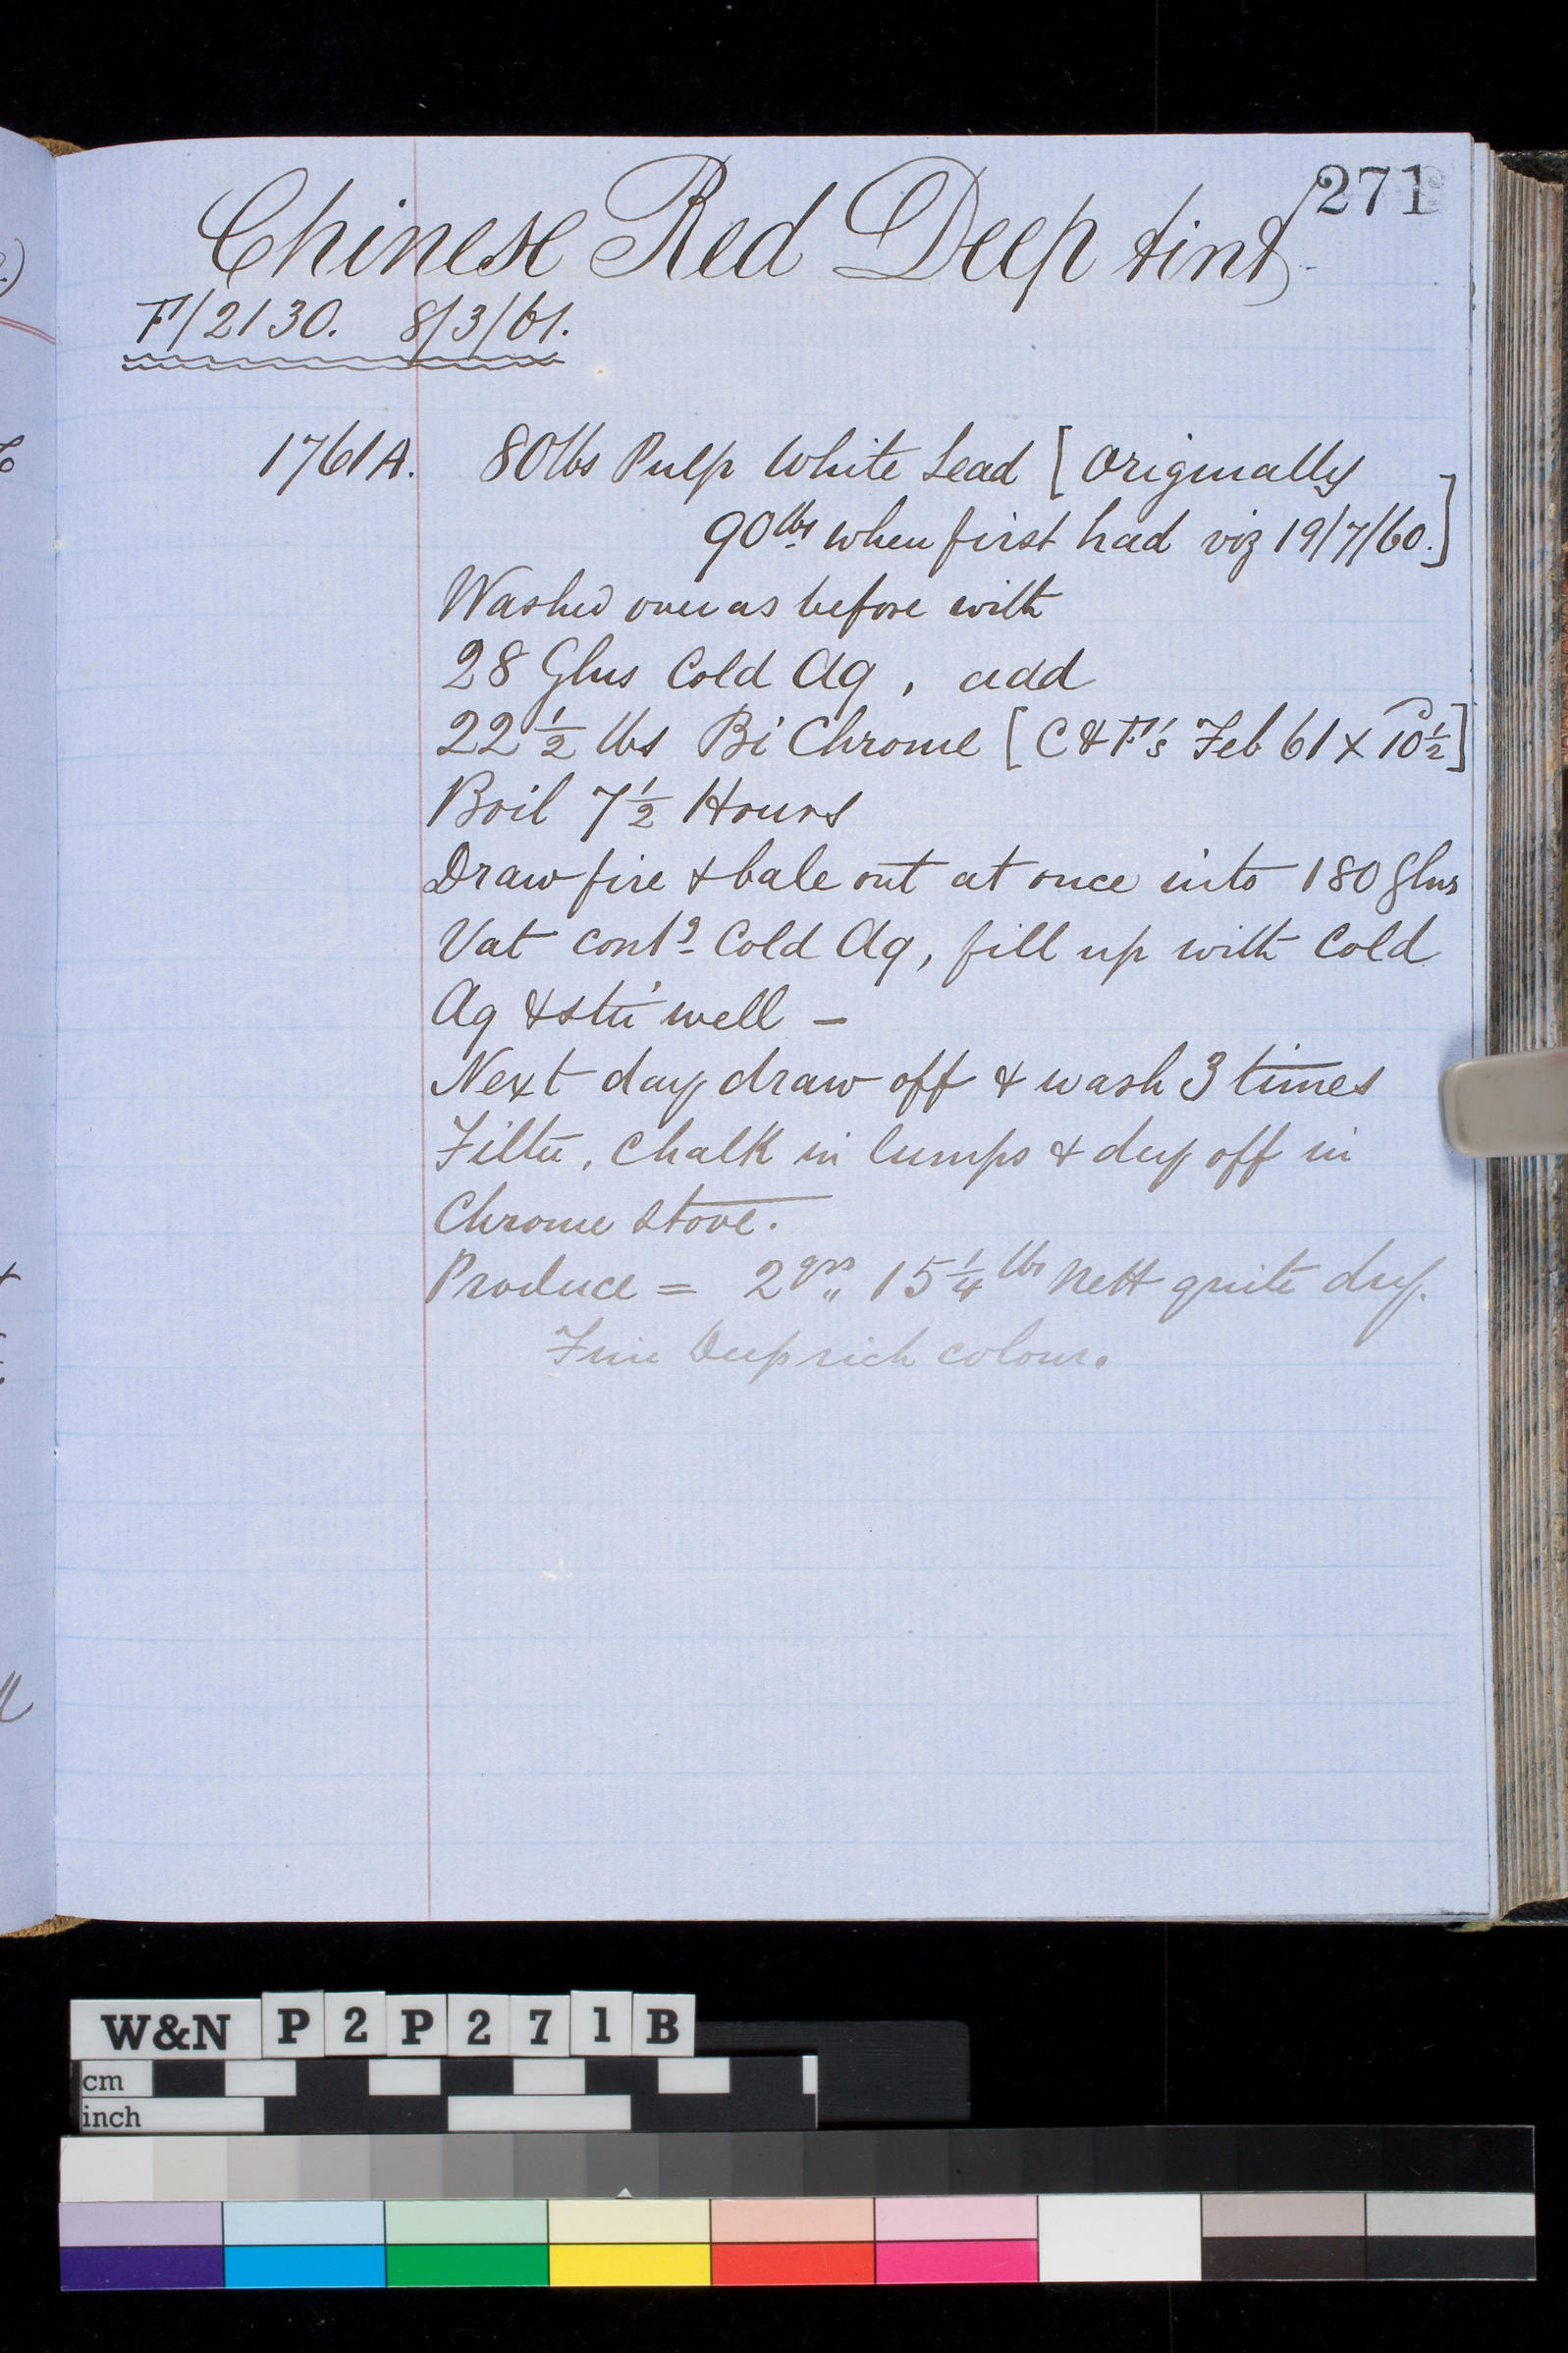 271
Chinese Red Deep tint
F/2130. 8/3/61.
1761A. 80lbs Pulp White Lead [Originally
90lbs when first had viz 19/7/60.]
Washed over as before with
28 Glns Cold Aq, add
22 1/2 lbs Bi Chrome [C & F's Feb 61 x 10 1/2]
Boil 7 1/2 Hours
Draw fire & bale out at once into 180 Glns
Vat contg Cold Aq, fill up with Cold
Aq & stir well -
Next day draw off & wash 3 times
Filter, Chalk in lumps & dry off in
Chrome stove.
Produce = 2 qrs 15 1/4 lbs nett quite dry.
Fine Deep rich colour.
W&N P2P271B
cm
inch